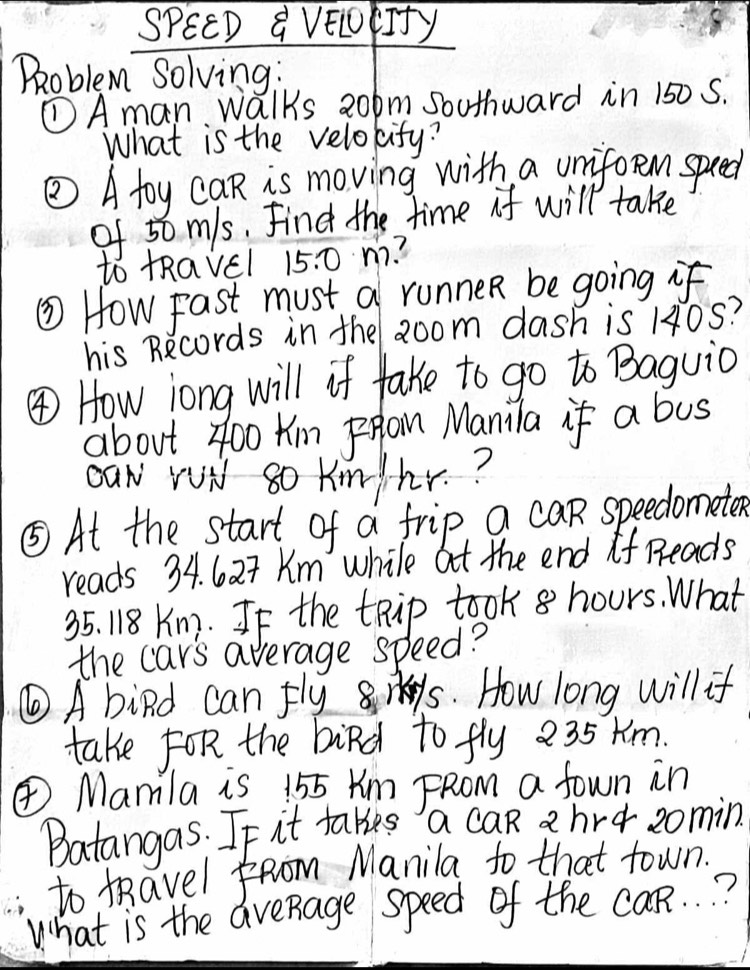 SPEED & VELOCITY
Problem Solving:
① A man walks 200m Southward in 150 S.
What is the velocity?
② A toy car is moving with a uniform speed
of 50 m/s. Find the time it will take
to travel 15.0 m?
③ How fast must a runner be going if
his Records in the 200m dash is 140s?
④ How long will it take to go to Baguio
about 400 Km from Manila if a bus
can run 80 Km/hr.?
⑤ At the start of a trip a car speedometer
reads 34.627 Km while at the end it Reads
35.118 Km. If the trip took 8 hours. What
the cars average speed?
⑥ A bird can fly 8 /s. How long will it
take for the bird to fly 235 Km.
⑦ Manila is 155 Km from a town in
Batangas. If it takes a car 2 hr & 20 min.
to travel from Manila to that town.
What is the average speed of the car...?